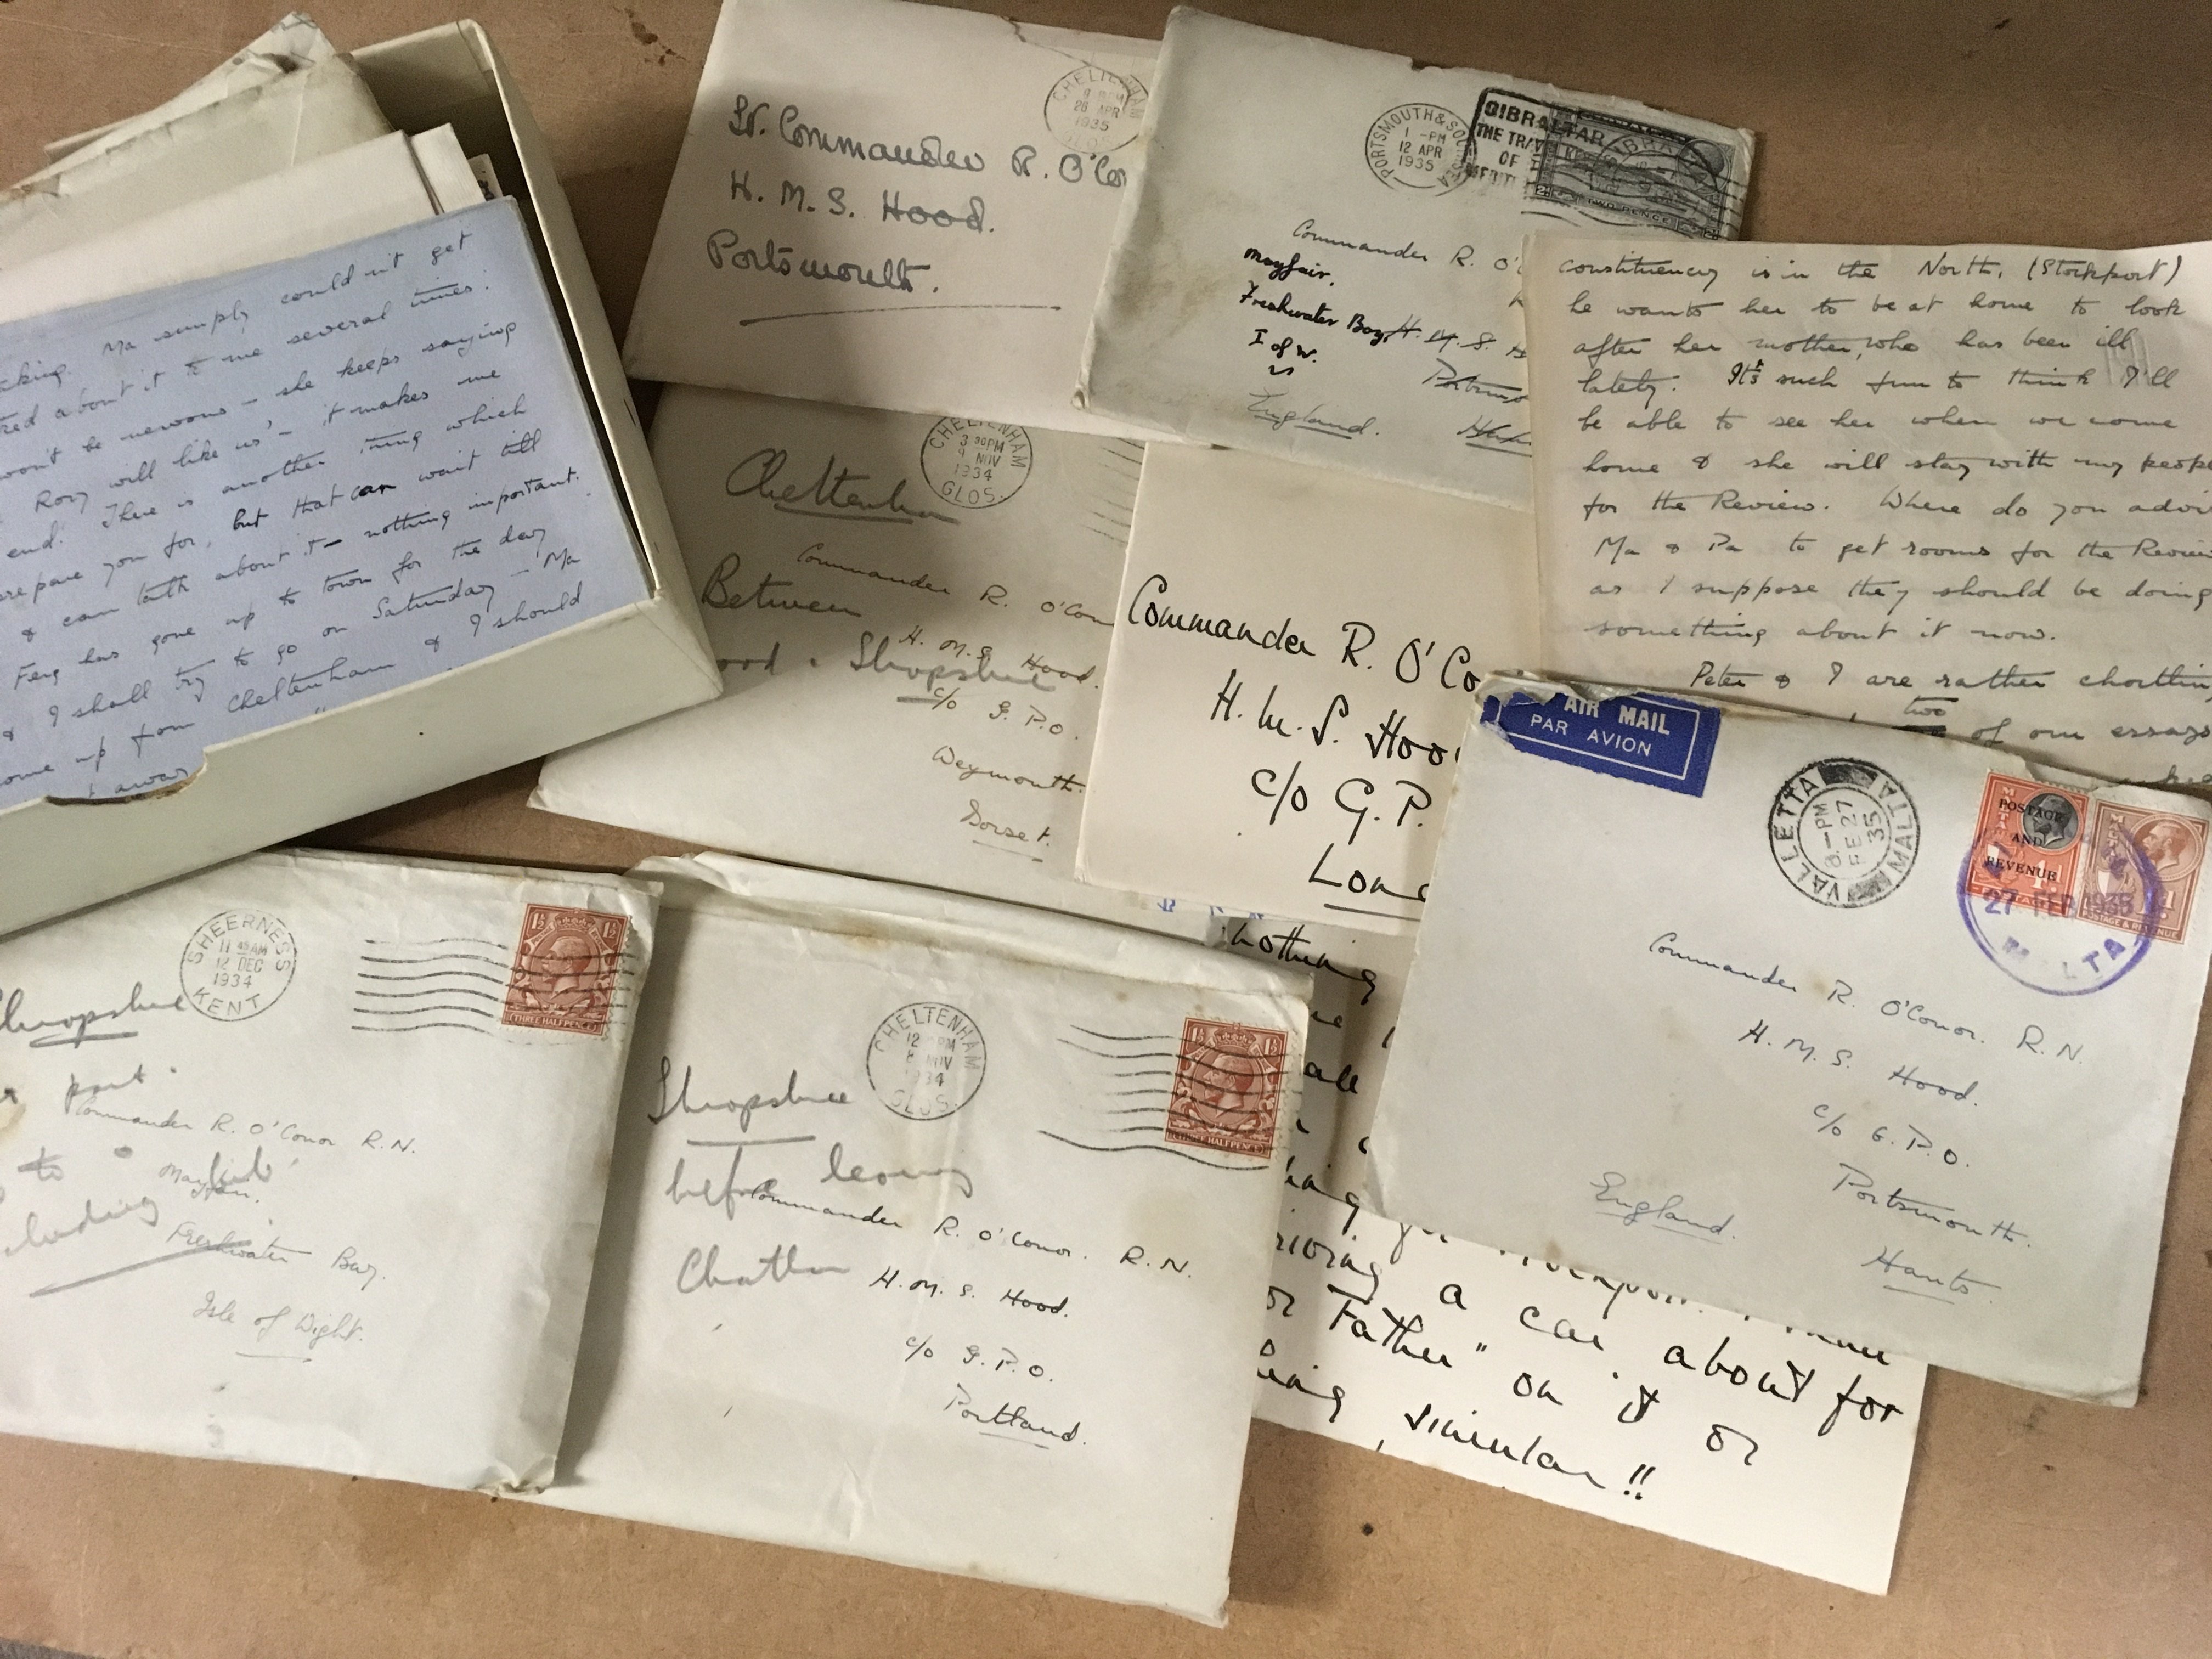 cking. Ma simply could n't get
about it to me several times.
won't be nervous – she keeps saying
Rory will like us' – it makes me
end! There is another thing which
prepare you for, but that can wait till
& can talk about it – nothing important.
Ferg has gone up to town for the day
& I shall try to go on Saturday – Ma
come up from Cheltenham & I should
away
CHELTENHAM
28 APR
1935
Commander R. O'Co
H. M. S. Hood.
Portsmouth.
PORTSMOUTH & SOUTHSEA
1 - PM
12 APR
1935
GIBRALTAR
THE TRAV
OF
TWO PENCE
Commander R. O'
Mayfair,
Freshwater Bay,
H. M. S.
I of W.
Portsmo
England.
constituency is in the North, (Stockport)
he wants her to be at home to look
after her mother, who has been ill
lately. It's such fun to think I'll
be able to see her when we come
home & she will stay with my peop
for the Review. Where do you advi
Ma & Pa to get rooms for the Review
as I suppose they should be doing
something about it now.
Peter & I are rather chortling
two
of our essays
CHELTENHAM
3 30 PM
9 NOV
1934
GLOS.
Cheltenham
Between
ood & Shropshire
Commander R. O'Con
H. M. S. Hood.
c/o G. P. O.
Weymouth.
Dorset.
Commander R. O'Co
H. M. S. Hoo
c/o G. P.
Lon
AIR MAIL
PAR AVION
VALLETTA
MALTA
8 - PM
FE 27
35
POSTAGE
AND
REVENUE
27 FEB 1935
MALTA
Commander R. O'Conor. R. N.
H. M. S. Hood.
c/o G. P. O.
Portsmouth.
Hants
England.
SHEERNESS
KENT
11 45 AM
12 DEC
1934
THREE HALFPENCE
Shropshire
Commander R. O'Conor R. N.
Mayfair.
Freshwater Bay.
Isle of Wight.
CHELTENHAM
GLOS.
8 NOV
1934
THREE HALFPENCE
Shropshire
before leaving
Chatham
Commander R. O'Conor. R. N.
H. M. S. Hood.
c/o G. P. O.
Portland.
nothing
all
driving a car about for
or Father" on it or
thing similar!!